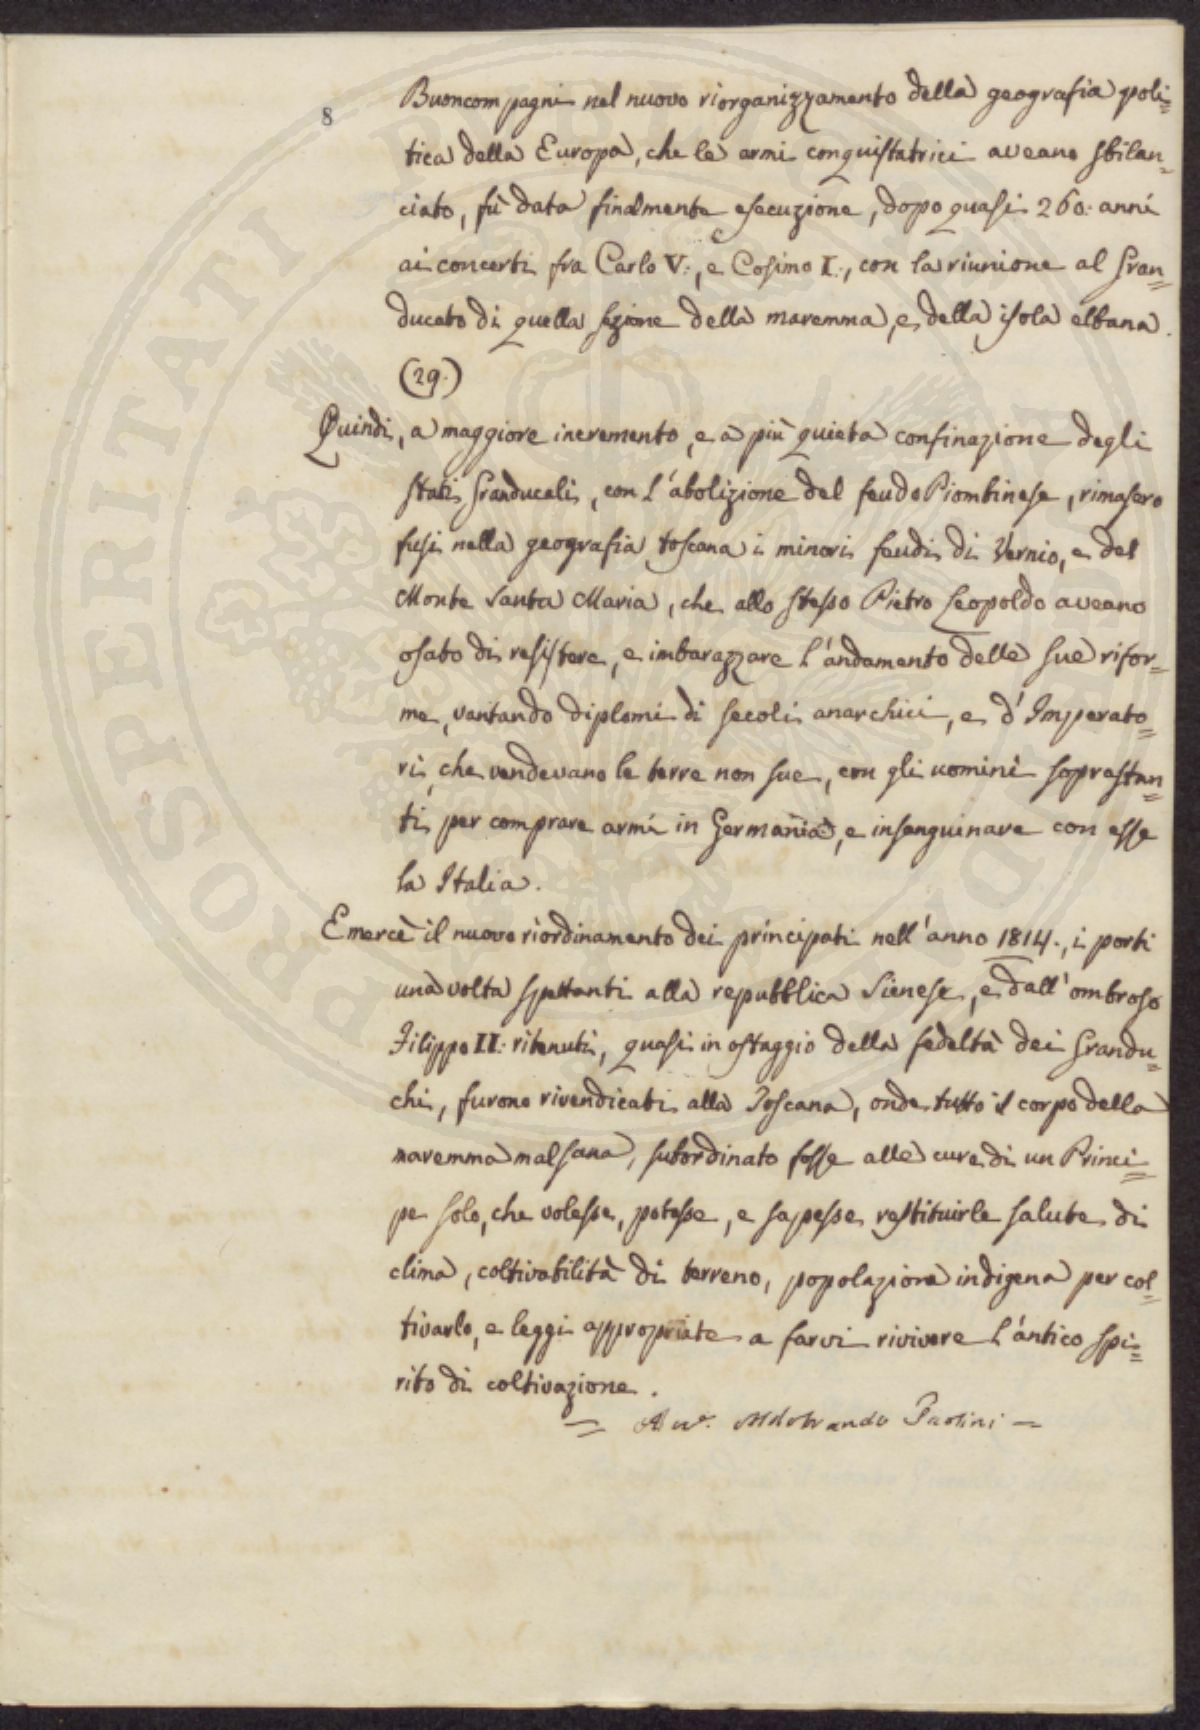 8
Buoncompagni nel nuovo riorganizzamento della geografia poli=
tica della Europa, che le armi conquistatrici aveano sbilan=
ciato, fù data finalmente esecuzione, dopo quasi 260. anni
ai concerti fra Carlo V:, e Cosimo I:, con la riunione al Gran=
ducato di quella sezione della maremma, e della isola elbana.
(29.)
Quindi, a maggiore incremento, e a più quieta confinazione degli
Stati Granducali, con l'abolizione del feudo Piombinese, rimasero
fusi nella geografia toscana i minori feudi di Vernio, e del
Monte Santa Maria, che allo stesso Pietro Leopoldo aveano
osato di resistere, e imbarazzare l'andamento delle sue rifor=
me, vantando diplomi di secoli anarchici, e d'Imperato=
ri, che vendevano le terre non sue, con gli uomini soprastan=
ti, per comprare armi in Germania, e insanguinare con esse
la Italia.
E mercè il nuovo riordinamento dei principati nell'anno 1814., i porti
una volta spettanti alla repubblica Sienese, e dall'ombroso
Filippo II: ritenuti, quasi in ostaggio della fedeltà dei Grandu=
chi, furono rivendicati alla Toscana, onde tutto il corpo della
maremma malsana, subordinato fosse alle cure di un Princi=
pe solo, che volesse, potesse, e sapesse restituirle salute di
clima, coltivabilità di terreno, popolazione indigena per col=
tivarlo, e leggi appropriate a farvi rivivere l'antico spi=
rito di coltivazione.
= Avv. Aldobrando Paolini =
PROSPERITATI PUBLICAE